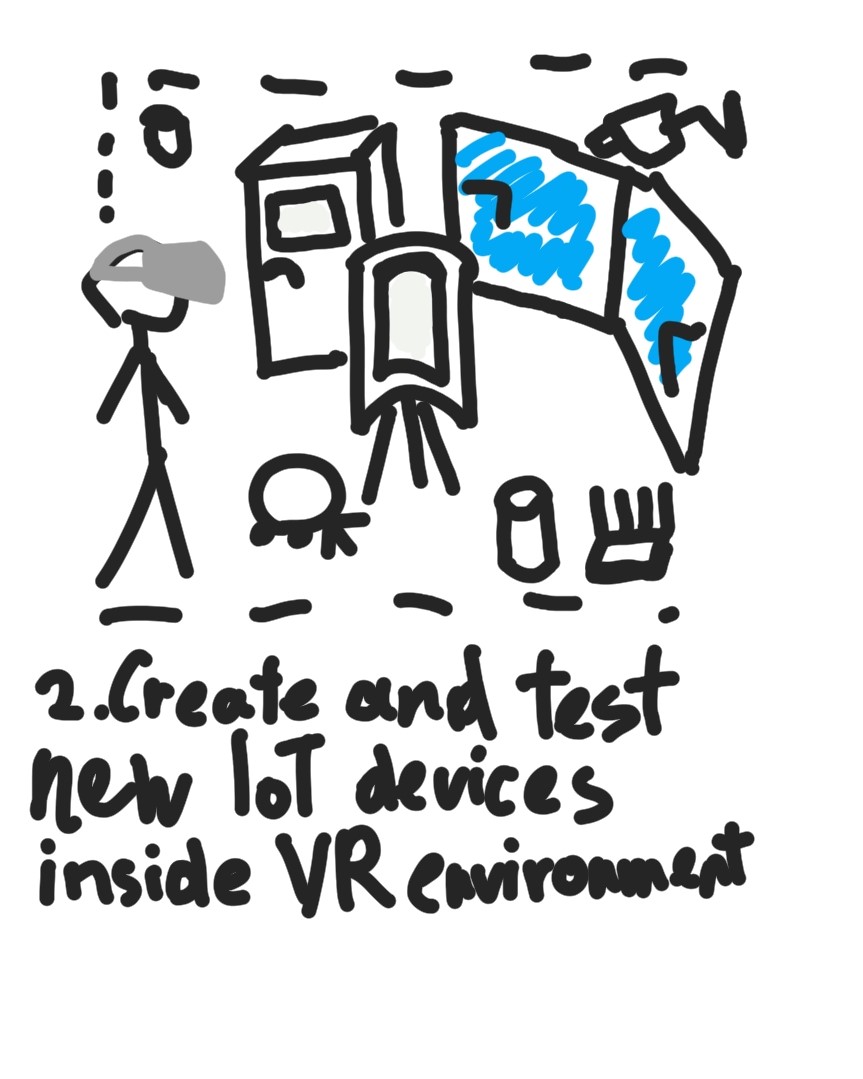 2. Create and test
new IoT devices
inside VR environment